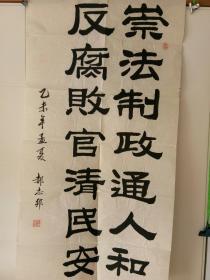 崇法制政通人和
反腐敗官清民安
乙未年孟夏 郝志邦